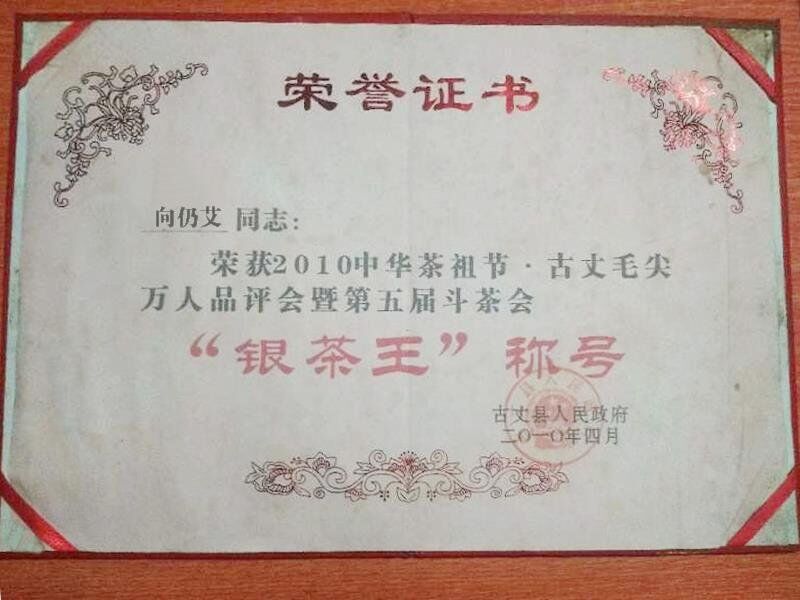 荣誉证书
向仍艾 同志：
荣获2010中华茶祖节·古丈毛尖
万人品评会暨第五届斗茶会
“银茶王”称号
古丈县人民政府
二〇一〇年四月